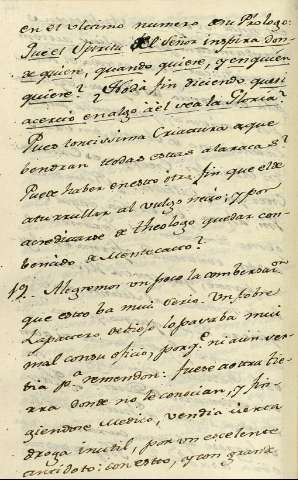 en el ultimo numero de su Prologo:
Que el Spiritu del Señor inspira don-
de quiere, quando quiere, y en quien
quiere? ? Y todo fin diciendo que si
acertó en algo à el sea la Gloria?
Pues tontissima Criatura a que
bendran todas estas alaracas?
Puede haber en esto otro fin que el de
aturrullar al vulgo necio; y por
acreditarse de theologo quedar con-
benido de Mentecato?
19. Alegremos un poco la combersacion
que esto ba mui serio. Un pobre
Zapatero ocioso lo pasaba mui
mal con su oficio, porqe. ni aun ser-
via pa. remendon: fuese a otra tie-
rra donde no le conocian, y fin-
giendose Medico, vendia cierta
droga inutil, por un excelente
antidoto: con esto, y con grande